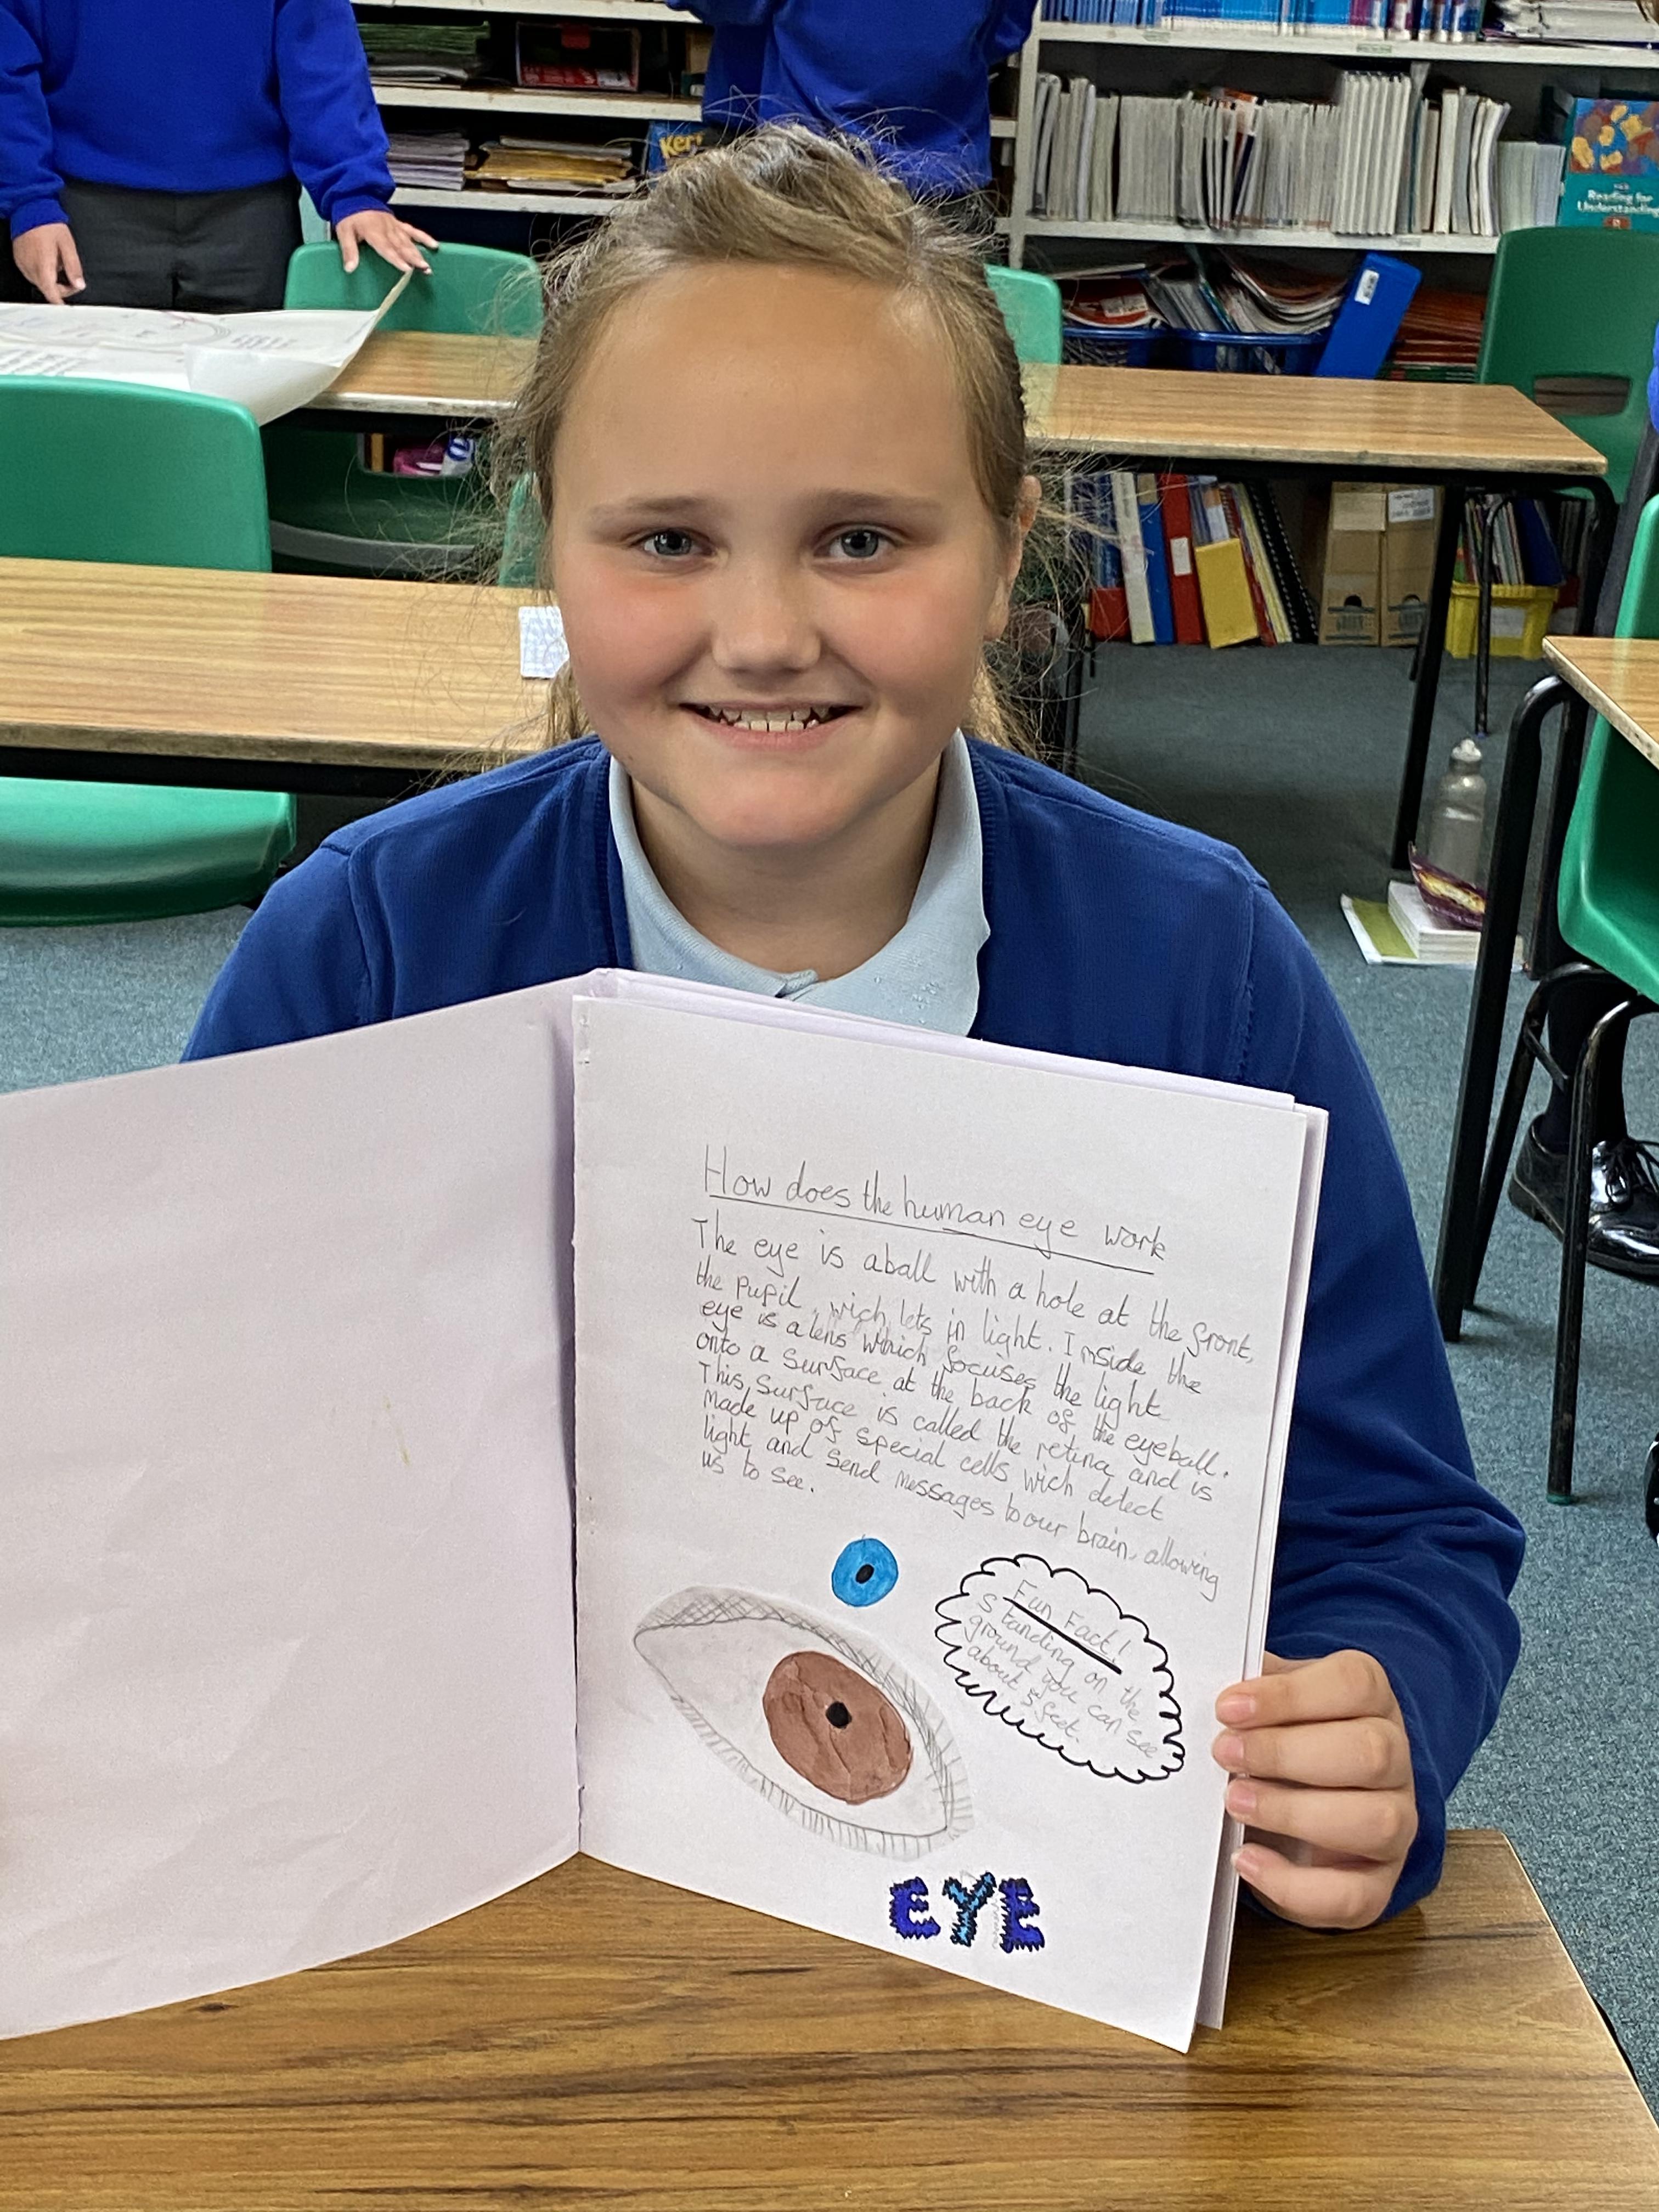 Ker
Reading for
Understanding
How does the human eye work
The eye is a ball with a hole at the front,
the pupil, wich lets in light. Inside the
eye is a lens which focuses the light
onto a surface at the back of the eyeball.
This surface is called the retina and is
made up of special cells wich detect
light and send messages to our brain, allowing
us to see.
Fun Fact!
Standing on the
ground you can see
about feet.
EYE